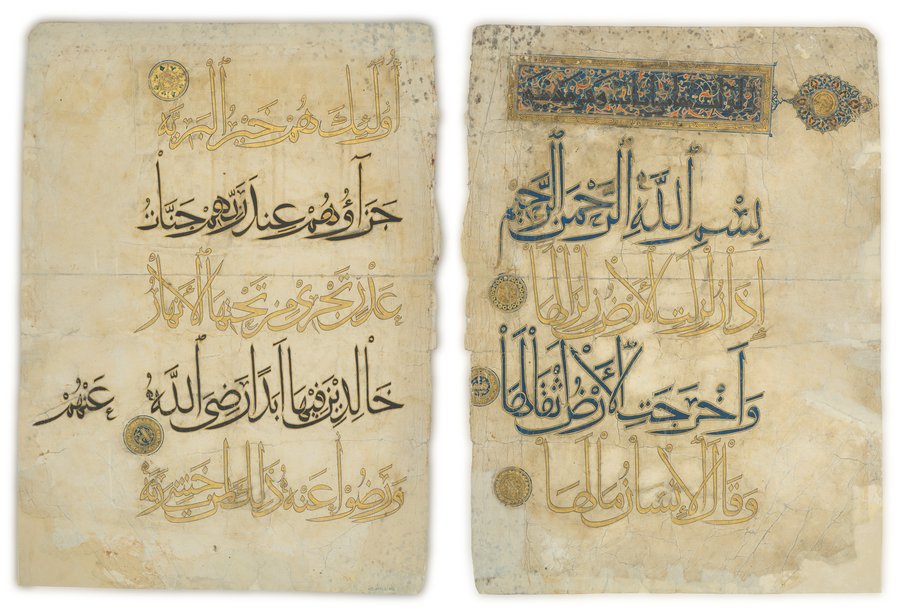 أُولَٰئِكَ هُمْ خَيْرُ الْبَرِيَّةِ
جَزَآؤُهُمْ عِنْدَ رَبِّهِمْ جَنَّاتُ
عَدْنٍ تَجْرِي مِنْ تَحْتِهَا الْأَنْهَارُ
خَالِدِينَ فِيهَا أَبَدًا رَضِيَ اللَّهُ عَنْهُمْ
وَرَضُوا عَنْهُ ذَٰلِكَ لِمَنْ خَشِيَ رَبَّهُ
بِسْمِ اللَّهِ الرَّحْمَٰنِ الرَّحِيمِ
إِذَا زُلْزِلَتِ الْأَرْضُ زِلْزَالَهَا
وَأَخْرَجَتِ الْأَرْضُ أَثْقَالَهَا
وَقَالَ الْإِنْسَانُ مَا لَهَا